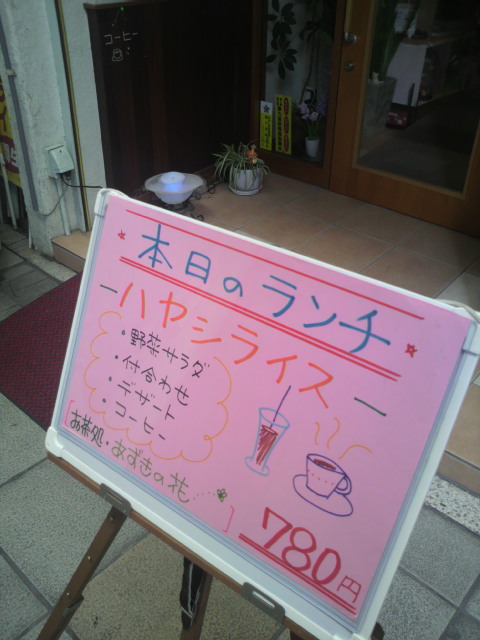 コーヒー
本日のランチ
ハヤシライス
・野菜サラダ
・付合わせ
・デザート
・コーヒー
[お茶処・あずきの花....]
780円